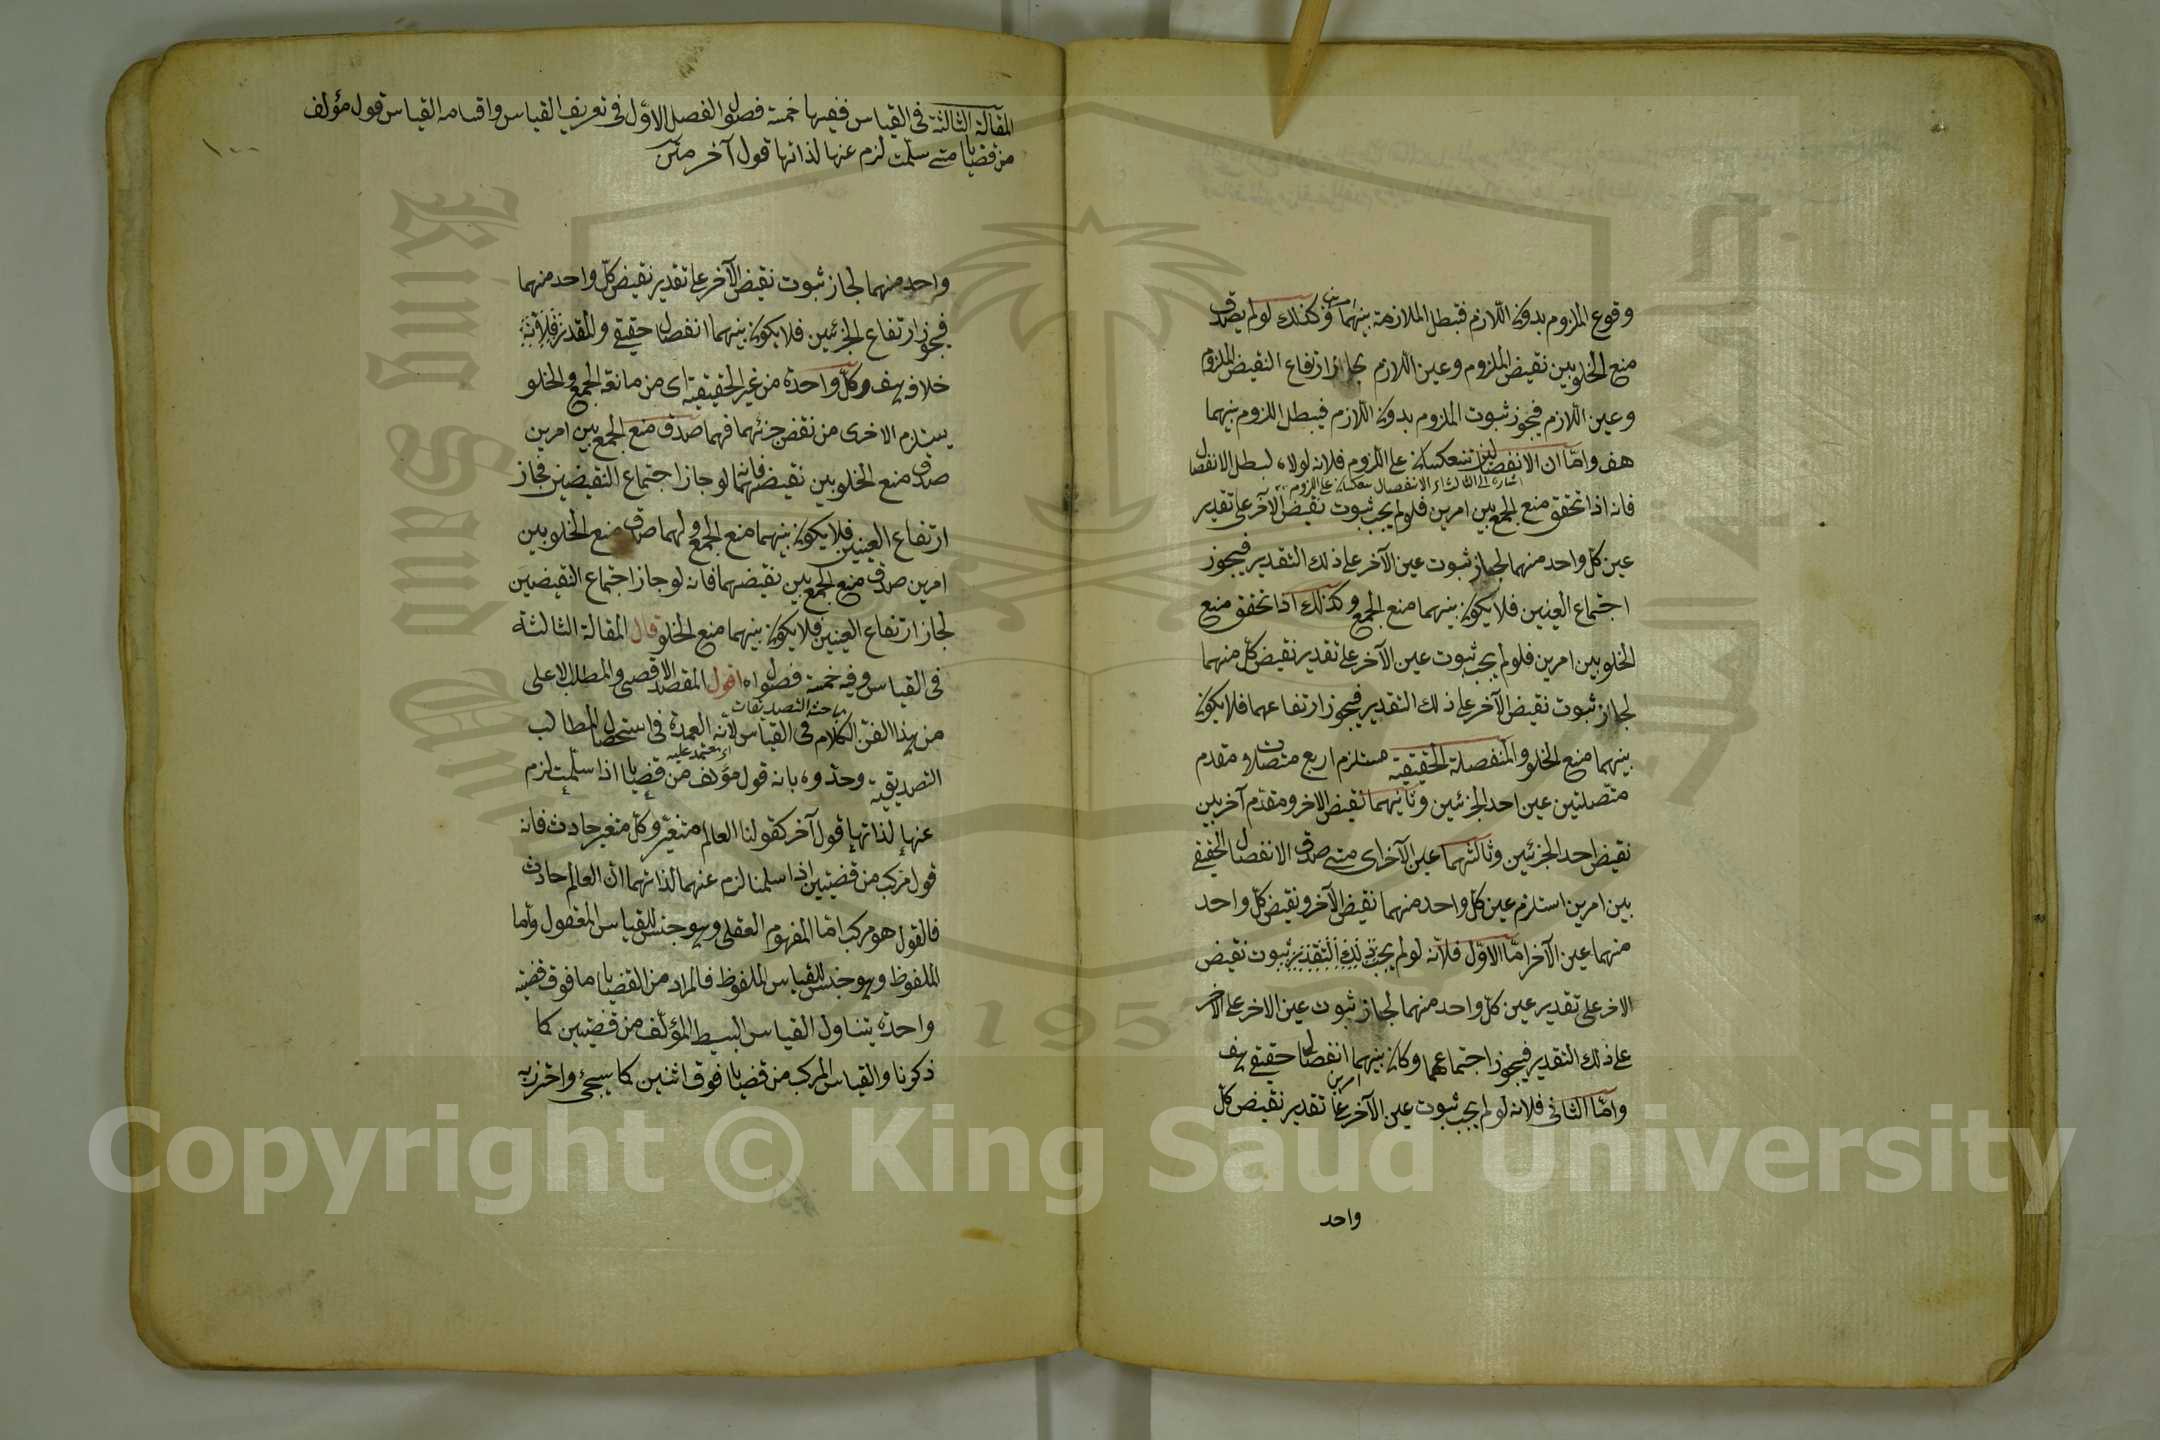 وقوع الملزوم بدون اللازم فبطل الملازمة بينهما وكذلك لو لم يصدق
منع الخلو بين نقيض الملزوم وعين اللازم لجاز ارتفاع النقيض الملزوم
وعين اللازم فيجوز ثبوت الملزوم بدون اللازم فيبطل اللزوم بينهما
هف واما ان الانفصالين تنعكسان على اللزوم فلانه لولاه لبطل الانفصال
فانه اذا تحقق منع الجمع بين امرين فلو لم يجب ثبوت نقيض الآخر على تقدير
عين كل واحد منهما لجاز ثبوت عين الآخر على ذلك التقدير فيجوز
اجتماع العينين فلا يكون بينهما منع الجمع وكذلك اذا تحقق منع
الخلو بين امرين فلو لم يجب ثبوت عين الآخر على تقدير نقيض كل منهما
لجاز ثبوت نقيض الآخر على ذلك التقدير فيجوز ارتفاعهما فلا يكون
بينهما منع الخلو والمنفصلة الحقيقية مستلزم اربع متصلات ومقدم
متصلتين عين احد الجزئين وتاليهما نقيض الاخر ومقدم آخريين
نقيض احد الجزئين وتاليهما عين الآخر اى متى صدق الانفصال الحقيقى
بين امرين استلزم عين كل واحد منهما نقيض الآخر ونقيض كل واحد
منهما عين الآخر اما الاول فلانه لو لم يجب ثبوت نقيض
الاخر على تقدير عين كل واحد منهما لجاز ثبوت عين الاخر على الآخر
على ذلك التقدير فيجوز اجتماعهما وكان بينهما انفصال حقيقى هف
امرين
واما الثانى فلانه لو لم يجب ثبوت عين الآخر على تقدير نقيض كل
واحد
المقالة الثالثة فى القياس ففيها خمسة فصول الفصل الاول فى تعريف القياس واقسامه القياس قول مؤلف
من قضايا متى سلمت لزم عنها لذاتها قول آخر متن
١٠٠
واحد منهما لجاز ثبوت نقيض الآخر على تقدير نقيض كل واحد منهما
فيجوز ارتفاع الجزئين فلا يكون بينهما انفصال حقيقى والمقدر
خلافه هف وكل واحدة من غير الحقيقية اى من مانعة الجمع والخلو
يستلزم الاخرى من نقيض جزئهما فهما صدق منع الجمع بين امرين
صدق منع الخلو بين نقيضهما فانه لو جاز اجتماع النقيضين فجاز
ارتفاع العينين فلا يكون بينهما منع الجمع ولهما صدق منع الخلو بين
امرين صدق منع الجمع بين نقيضهما فانه لو جاز اجتماع النقيضين
لجاز ارتفاع العينين فلا يكون بينهما منع الخلو قال المقالة الثالثة
فى القياس وفيه خمسة فصول اه اقول المقصد الاقصى والمطلب الاعلى
مباحثة التصديقات
من هذا الفن الكلام فى القياس لانه العمدة فى استحصال المطالب
اى معتمد عليه
التصديقية وحدوه بانه قول مؤلف من قضايا اذا سلمت لزم
عنها لذاتها قول آخر كقولنا العالم متغير وكل متغير حادث فانه
قول مركب من قضيتين اذا سلمنا لزم عنهما لذاتهما ان العالم حادث
فالقول هو مركب اما المفهوم العقلى وهو جنس للقياس المعقول واما
الملفوظ وهو جنس للقياس الملفوظ فالمراد من القضايا ما فوق قضية
واحدة يتناول القياس البسيط المؤلف من قضيتين كما
ذكرنا والقياس المركب من قضايا فوق اثنين كما سيجئ واحترز به
King Saud University
جامعة الملك سعود
1957
Copyright © King Saud University